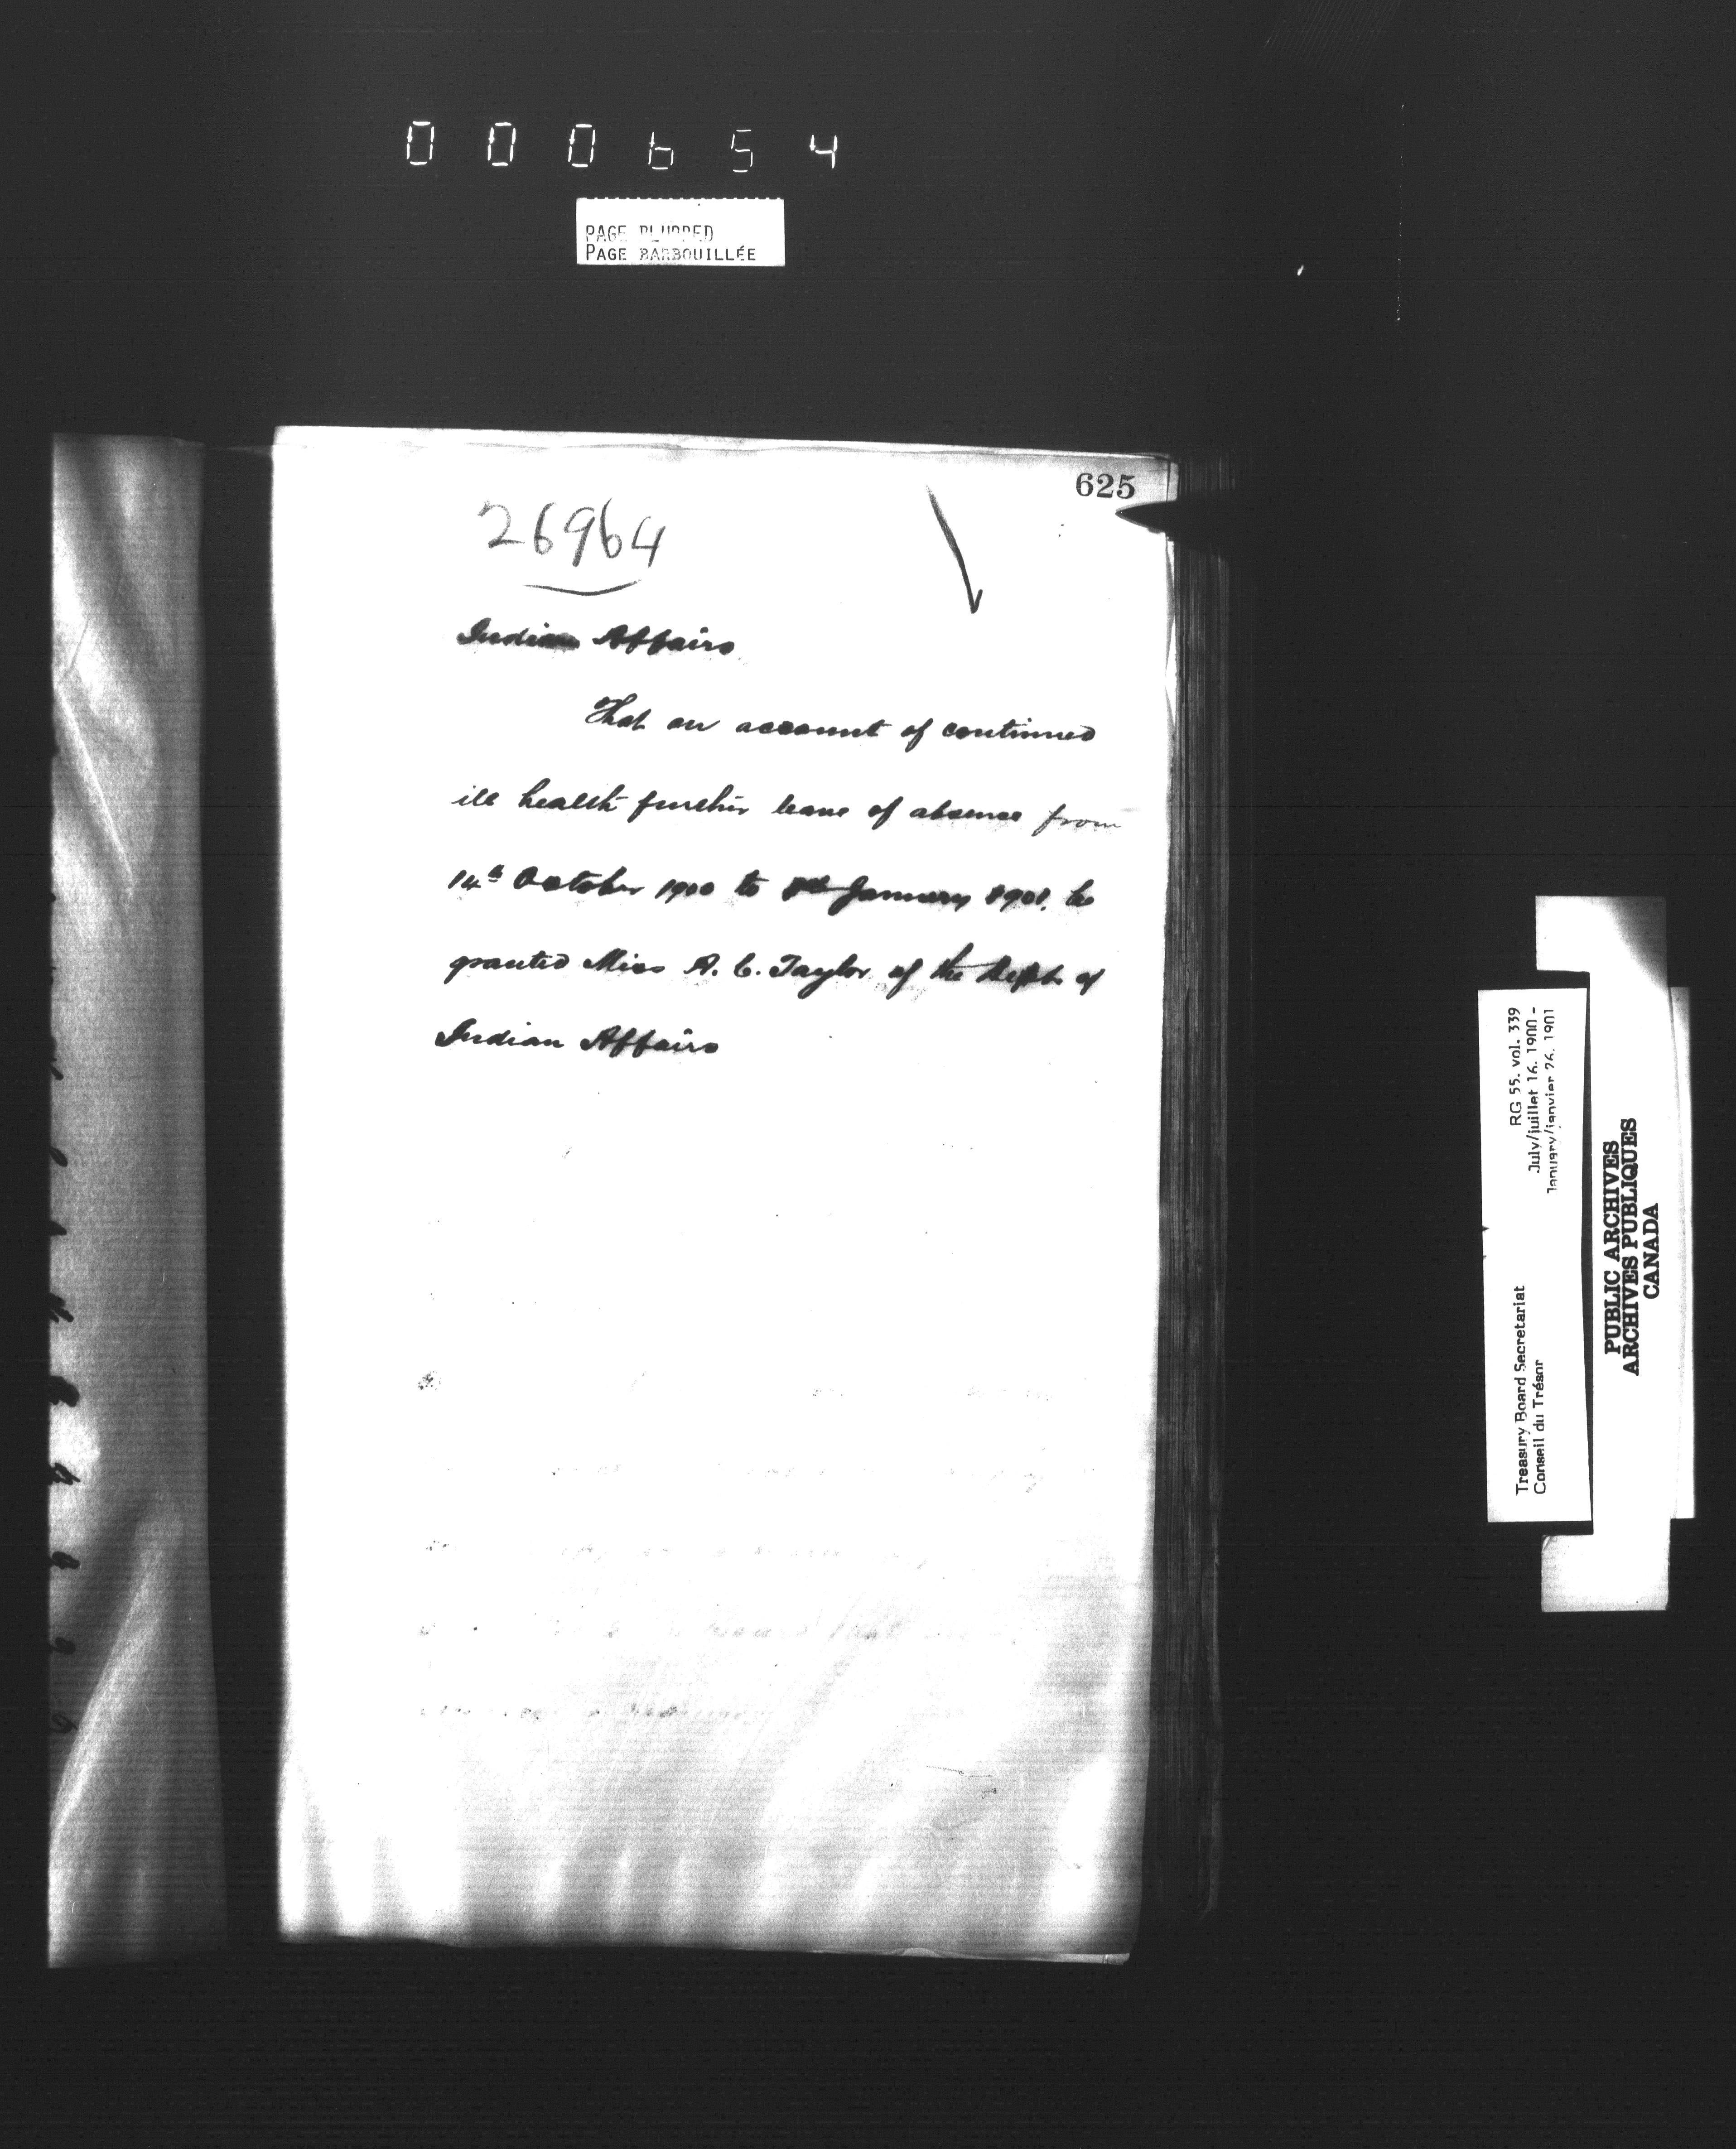 000654
PAGE BLURRED
PAGE BARBOUILLÉE
625
26964
Indian Affairs
That on account of continued
ill health further leave of absence from
14th October 1900 to January 1901, be
granted Miss A. C. Taylor of the Dept. of
Indian Affairs
RG 55. vol. 339
July/juillet 16. 1900 -
January/janvier 26. 1901
Treasury Board Secretariat
Conseil du Trésor
PUBLIC ARCHIVES
ARCHIVES PUBLIQUES
CANADA